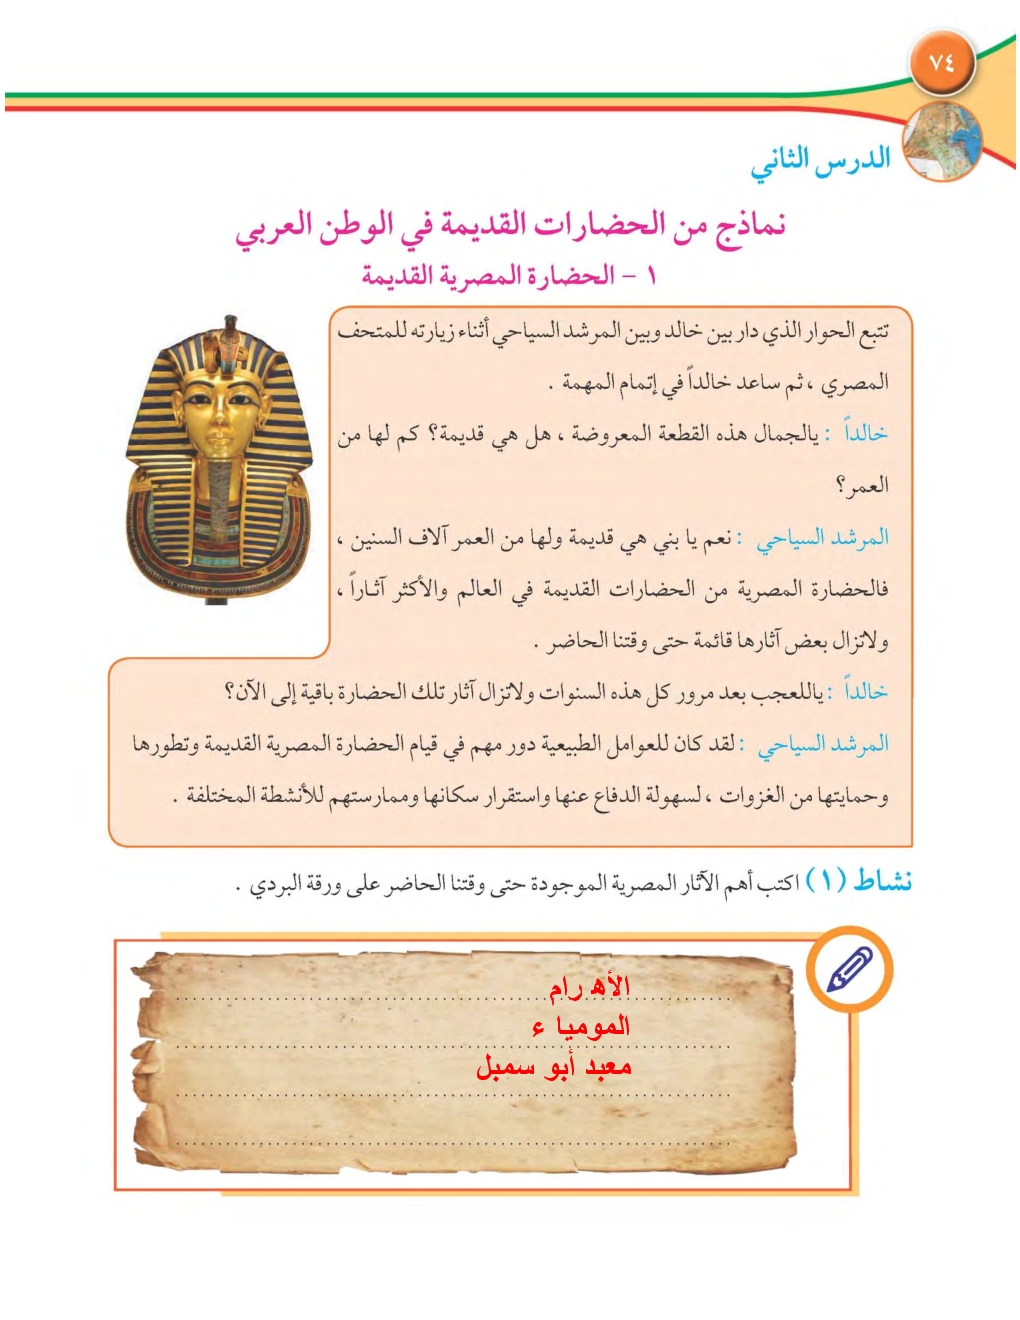 ٧٤
الدرس الثاني
نماذج من الحضارات القديمة في الوطن العربي
١ - الحضارة المصرية القديمة
تتبع الحوار الذي دار بين خالد وبين المرشد السياحي أثناء زيارته للمتحف
المصري ، ثم ساعد خالداً في إتمام المهمة .
خالداً : يالجمال هذه القطعة المعروضة ، هل هي قديمة؟ كم لها من
العمر؟
المرشد السياحي : نعم يا بني هي قديمة ولها من العمر آلاف السنين ،
فالحضارة المصرية من الحضارات القديمة في العالم والأكثر آثـاراً ،
ولاتزال بعض آثارها قائمة حتى وقتنا الحاضر .
خالداً : ياللعجب بعد مرور كل هذه السنوات ولاتزال آثار تلك الحضارة باقية إلى الآن؟
المرشد السياحي : لقد كان للعوامل الطبيعية دور مهم في قيام الحضارة المصرية القديمة وتطورها
وحمايتها من الغزوات ، لسهولة الدفاع عنها واستقرار سكانها وممارستهم للأنشطة المختلفة .
نشاط (١) اكتب أهم الآثار المصرية الموجودة حتى وقتنا الحاضر على ورقة البردي .
الأهرام
المومياء
معبد أبو سمبل